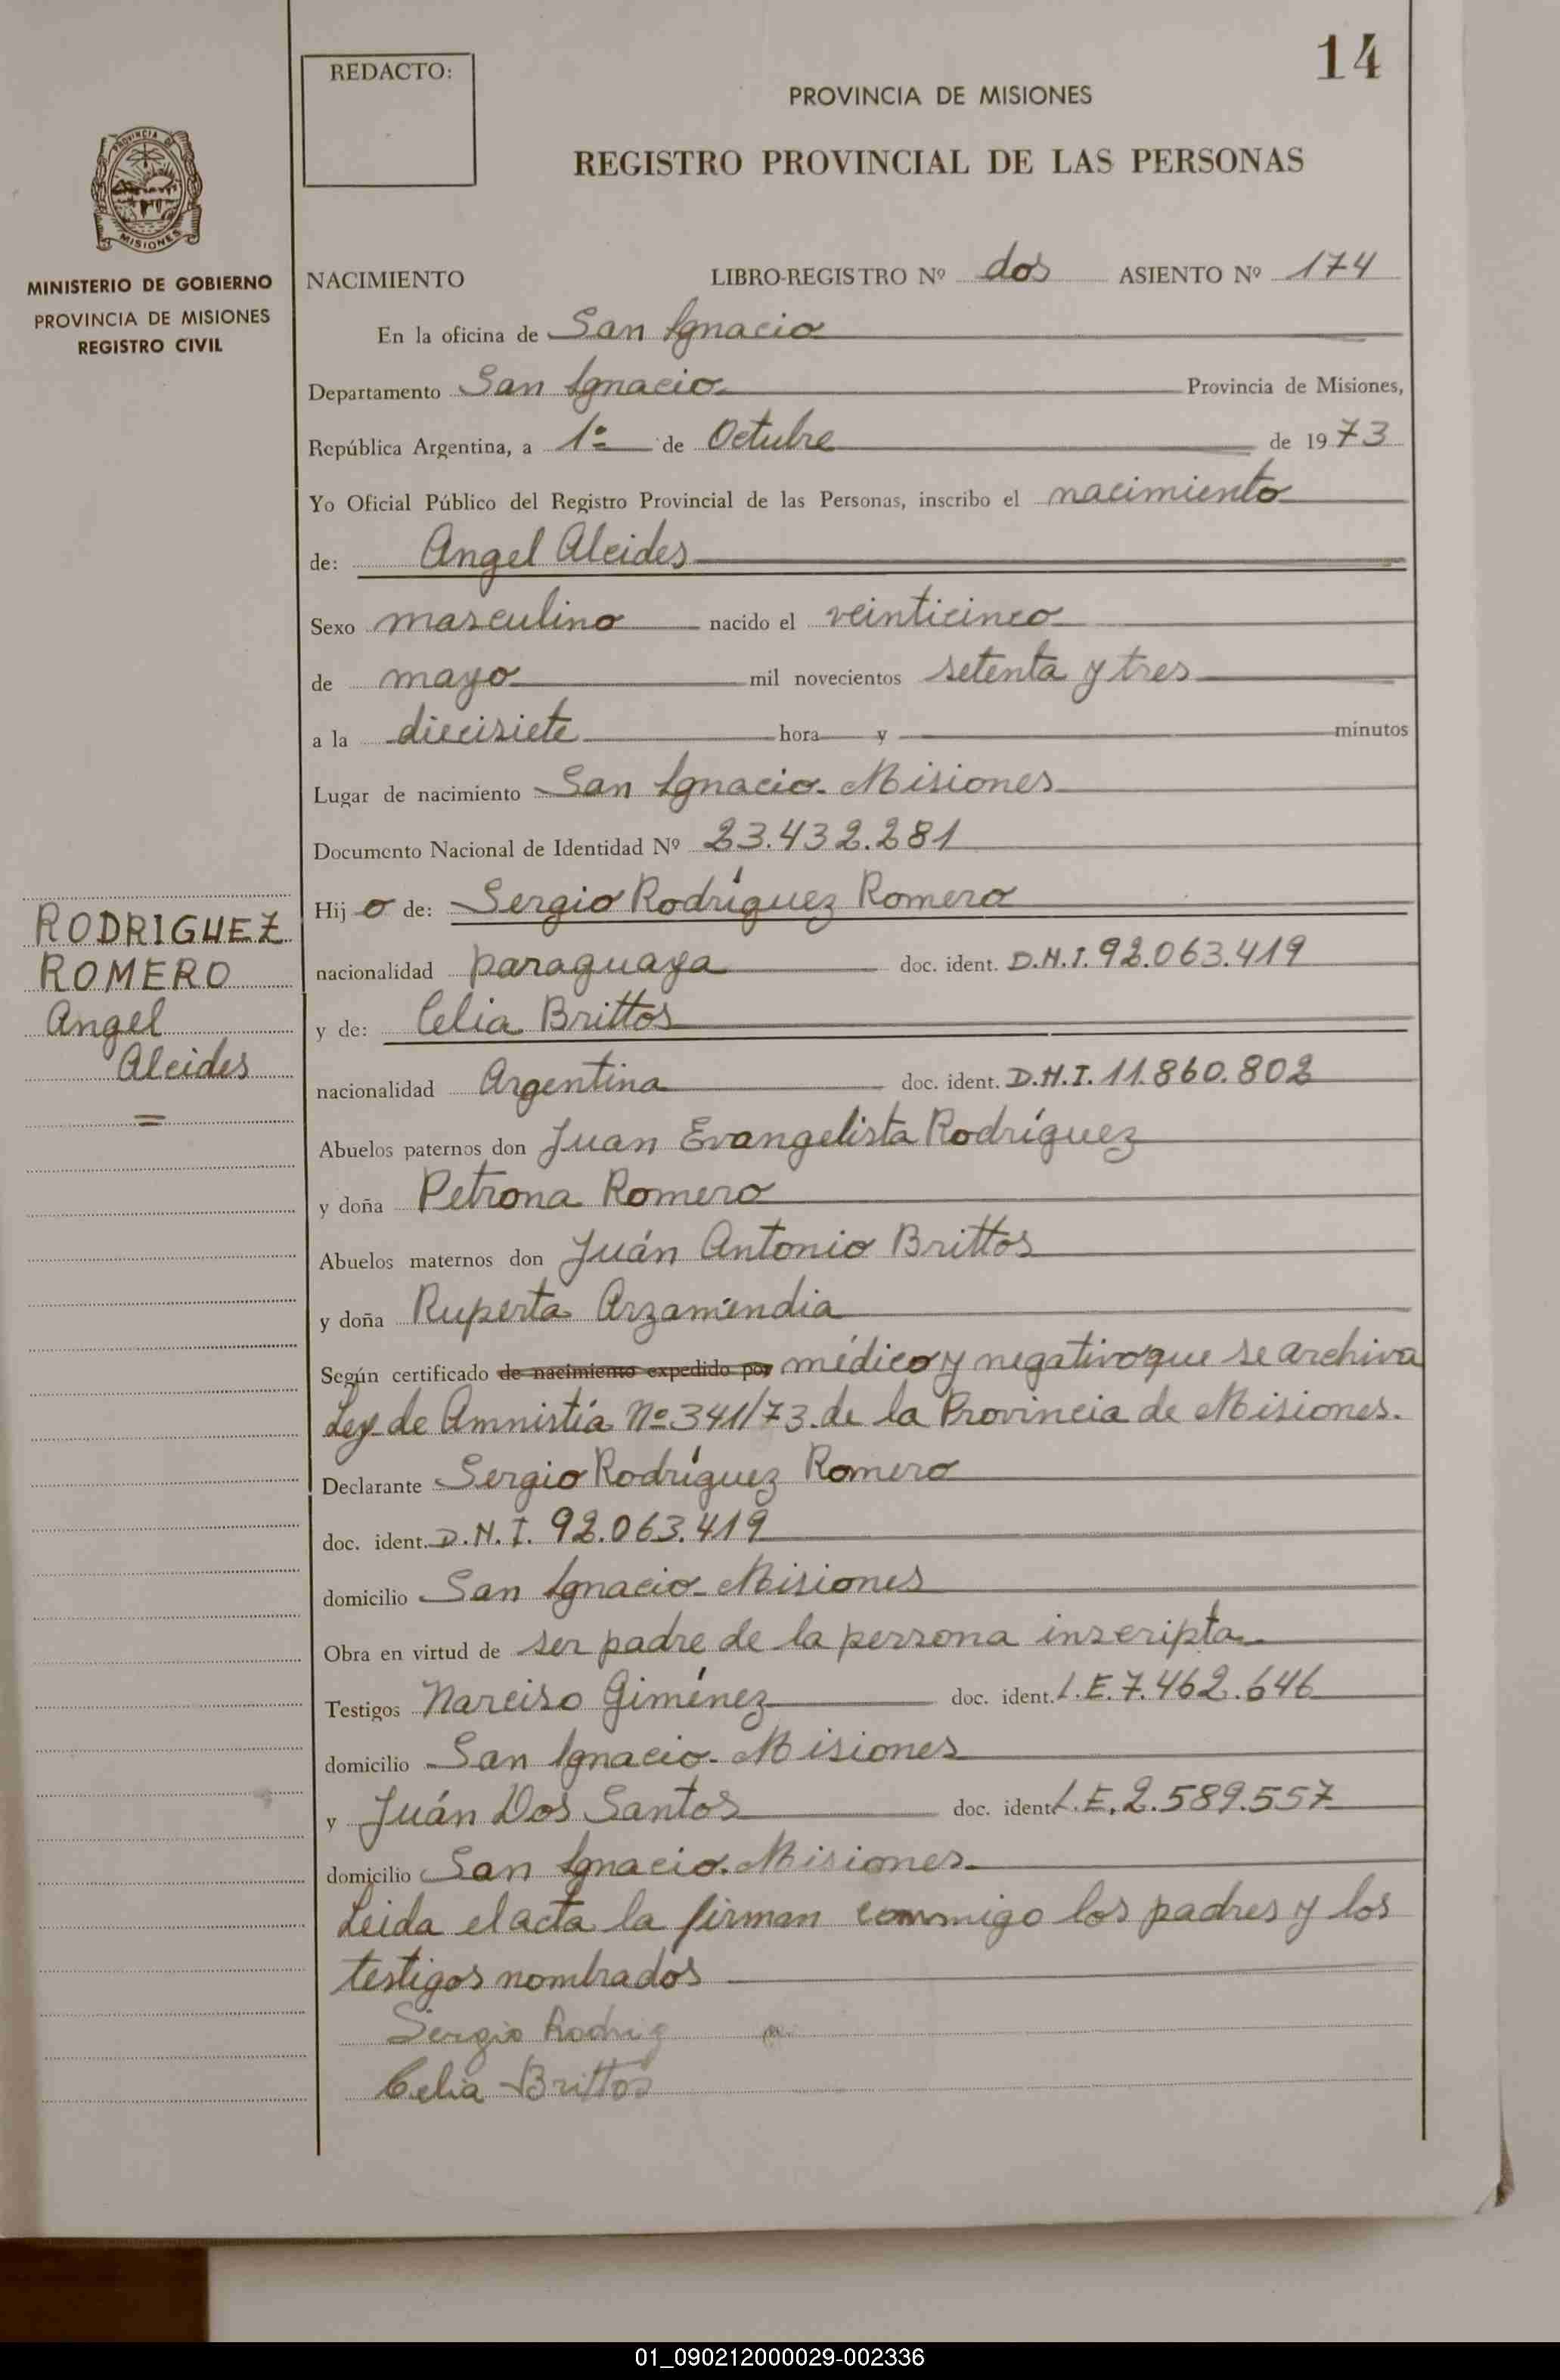 14
REDACTO:
PROVINCIA DE MISIONES
REGISTRO PROVINCIAL DE LAS PERSONAS
PROVINCIA DE
MISIONES
MINISTERIO DE GOBIERNO
PROVINCIA DE MISIONES
REGISTRO CIVIL
NACIMIENTO LIBRO-REGISTRO Nº dos ASIENTO Nº 174
En la oficina de San Ignacio
Departamento San Ignacio Provincia de Misiones,
República Argentina, a 1º de Octubre de 1973
Yo Oficial Público del Registro Provincial de las Personas, inscribo el nacimiento
de: Angel Alcides
Sexo masculino nacido el veinticinco
de mayo mil novecientos setenta y tres
a la diecisiete hora y minutos
Lugar de nacimiento San Ignacio. Misiones
Documento Nacional de Identidad Nº 23.432.281
Hijo de: Sergio Rodríguez Romero
nacionalidad paraguaya doc. ident. D.N.I. 92.063.419
y de: Celia Brittos
nacionalidad Argentina doc. ident. D.N.I. 11.860.802
Abuelos paternos don Juan Evangelista Rodríguez
y doña Petrona Romero
Abuelos maternos don Juán Antonio Brittos
y doña Ruperta Arzamendia
Según certificado de nacimiento expedido por médico y negativo que se archiva
Ley de Amnistía Nº 341/73 de la Provincia de Misiones.
Declarante Sergio Rodríguez Romero
doc. ident. D.N.I. 92.063.419
domicilio San Ignacio Misiones
Obra en virtud de ser padre de la persona inscripta
Testigos Narciso Giménez doc. ident. L.E. 7.462.646
domicilio San Ignacio. Misiones
y Juán Dos Santos doc. ident. L.E. 2.589.557
domicilio San Ignacio. Misiones
Leida el acta la firman conmigo los padres y los
testigos nombrados
Sergio Rodrig
Celia Brittos
RODRIGUEZ
ROMERO
Angel
Alcides
01_090212000029-002336